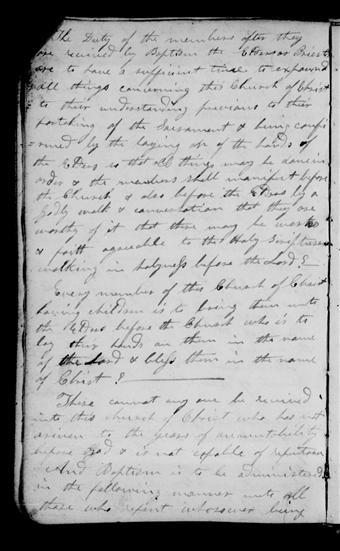 The Duty of the members after they
are received by Baptism the Elders or Priests
are to have a sufficient time to expound
all things concerning this Church of Christ
to their understanding previous to their
partaking of the Sacrament & being confi
rmed by the laying on of the hands of
the Elders so that all things may be done in
order & the members shall manifest before
the Church & also before the Elders by a
Godly walk & conversation that they are
worthy of it that there may be works
& faith agreeable to the Holy Scriptures
walking in holyness before the Lord
Every member of this Church of Christ
having children is to bring them unto
the Elders before the Church who is to
lay their hands on them in the name
of the Lord & bless them in the name
of Christ
There cannot any one be received
into this church of Christ who has not
arriven to the years of accountability
before God & is not capable of repentance
And Baptism is to be administered
in the following manner unto all
those who repent whosoever being